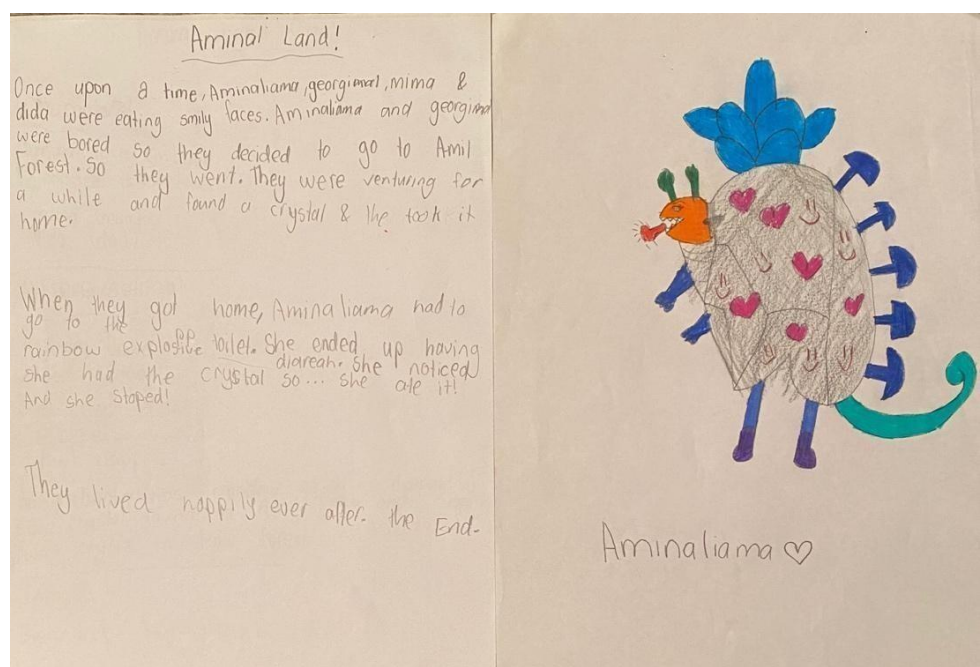 Aminal Land!
Once upon a time, Aminaliama, georgimal, mima &
dida were eating smily faces. Aminaliama and georgimal
were bored so they decided to go to Amil
Forest. So they went. They were venturing for
a while and found a crystal & the took it
home.
When they got home, Aminaliama had to
go to the
rainbow explosive toilet. She ended up having
diareah. She noticed
she had the crystal so... she ate it!
And she stoped!
They lived happily ever after. the End.
Aminaliama ♡